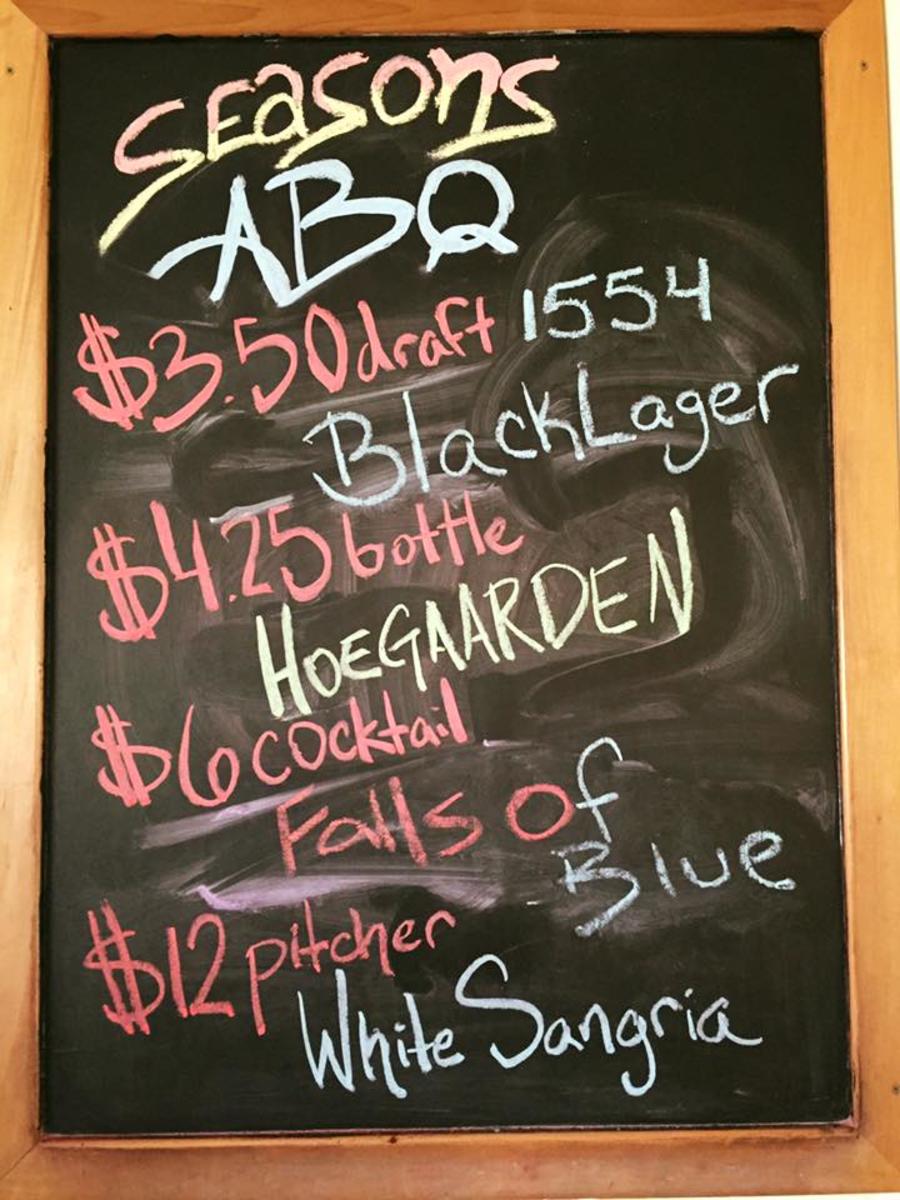 Seasons
ABQ
$3.50 draft 1554
Black Lager
$4.25 bottle
HOEGAARDEN
$6 cocktail
Falls of
Blue
$12 pitcher
White Sangria